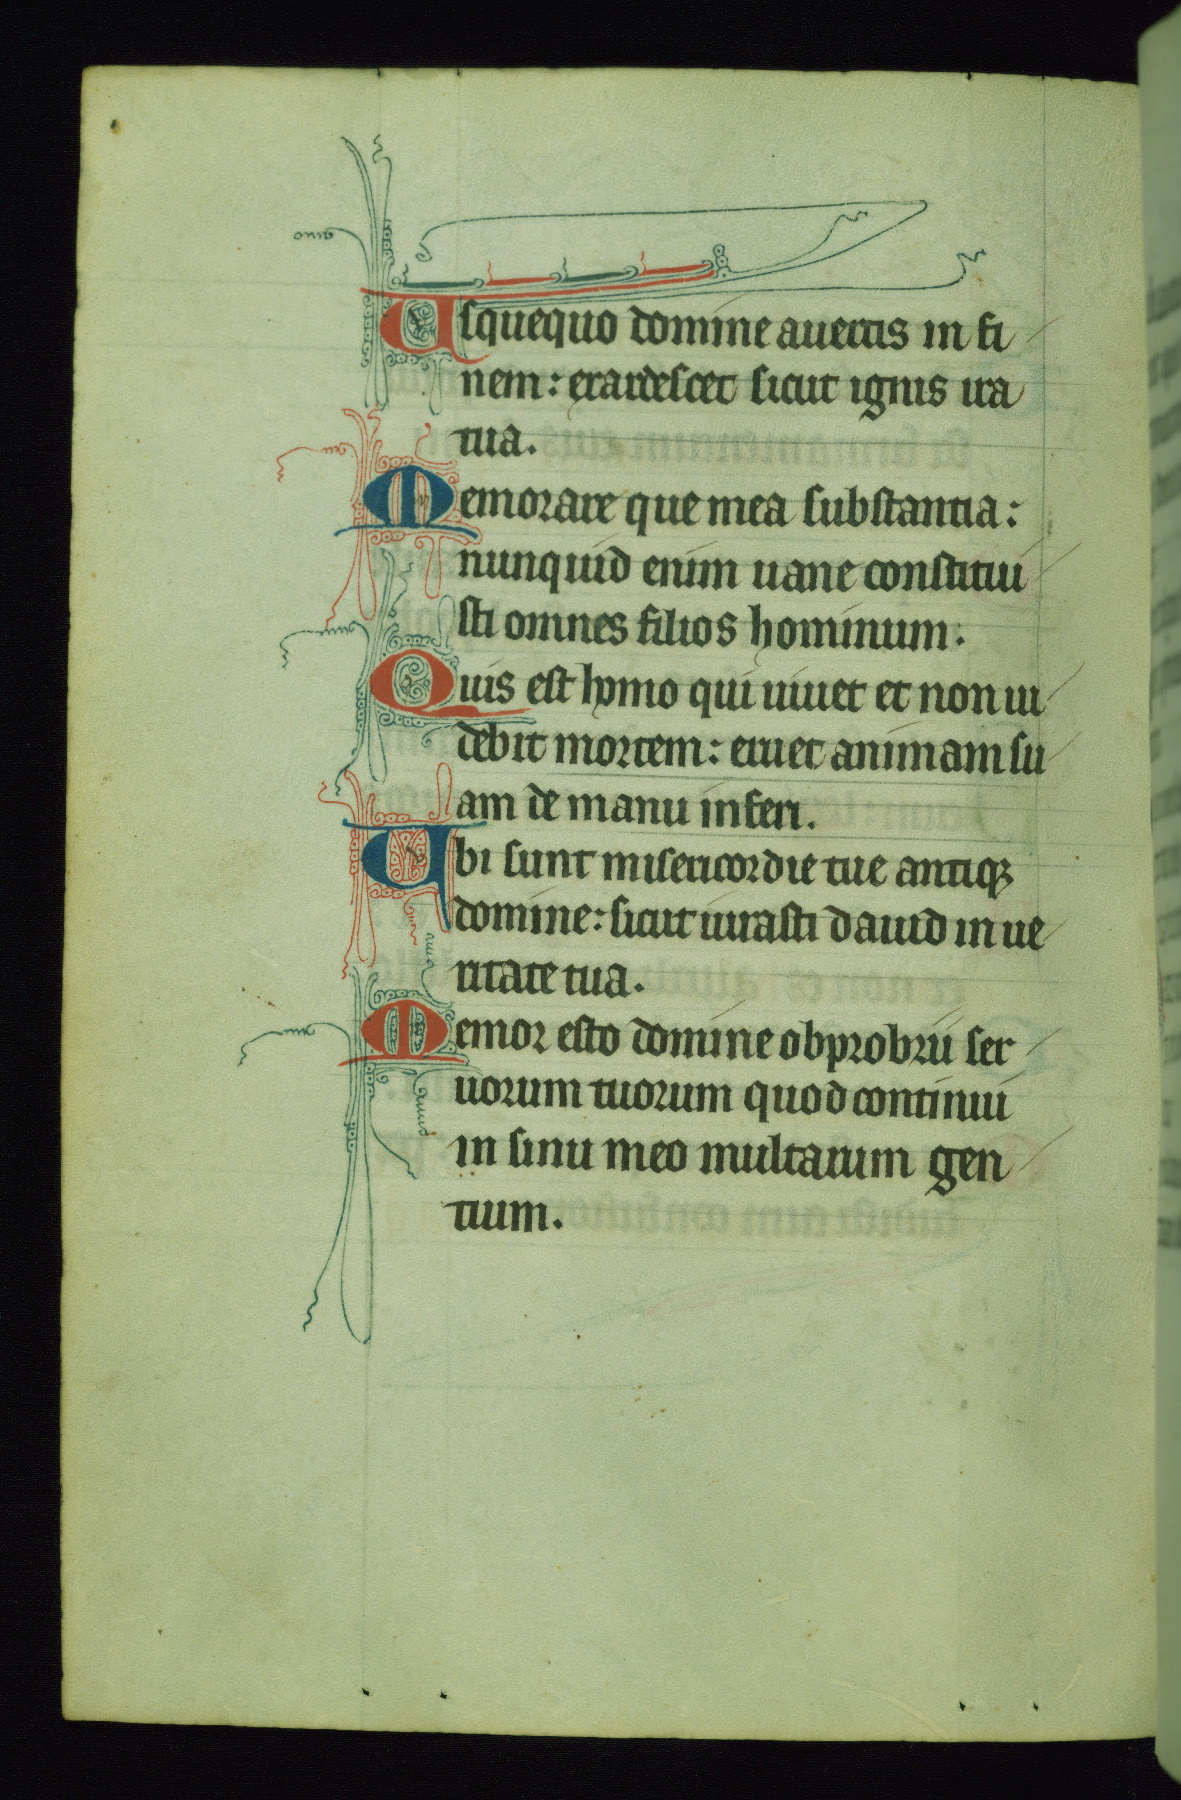 Usquequo domine auertis in fi
nem: exardescet sicut ignis ira
tua.
Memorare que mea substantia:
nunquid enim uane constitui
sti omnes filios hominum.
Quis est homo qui uiuet et non ui
debit mortem: eruet animam su
am de manu inferi.
Ubi sunt misericordie tue antiqꝫ
domine: sicut iurasti dauid in ue
ritate tua.
Memor esto domine obprobrii ser
uorum tuorum quod continui
in sinu meo multarum gen
tium.